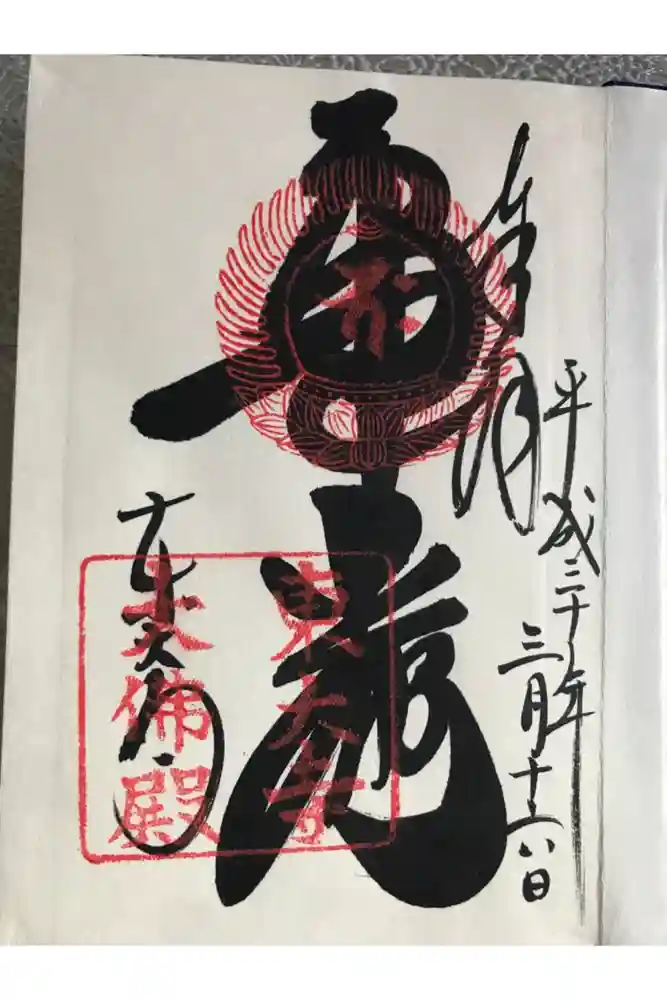 奉拝
平成三十年
三月十六日
華嚴
東大寺
東大寺
大佛殿